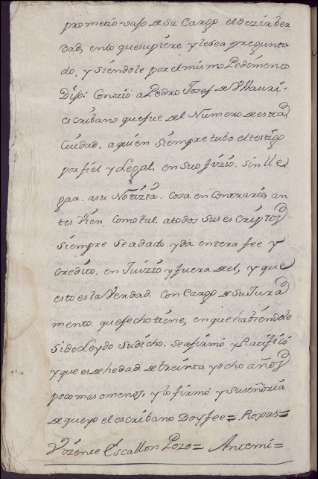 prometio vajo de Su Cargo el dezir ver
dad, en lo que supiere y le sea pregunta
do, y siendole por el mismo Pedimento
Dijo: Conzio a Pedro Josef de
escribano que fue del Numero de esta
Ciudad, a quien siempre tubo el testigo
por fiel y Legal, en Su ofizio. Sin lle
gar a su Notizia. Cosa en Contrario, an
tes vien Como tal atodos Sus escriptos
siempre Se a dado, y da entera fee y
Credito, en Juizio y fuera del, y que
esto es la Verdad. Con Cargo de Su Jura
mento que fecho tiene, en que haviendole
Sido Leydo Su dicho. Se afirmó y Ratificó
y que es de hedad de treinta y ocho años
poco mas o menos, y lo firmó y Su señoria
de que yo el escribano Doy fee=
Vizente Escallon Pozo= Antemi=